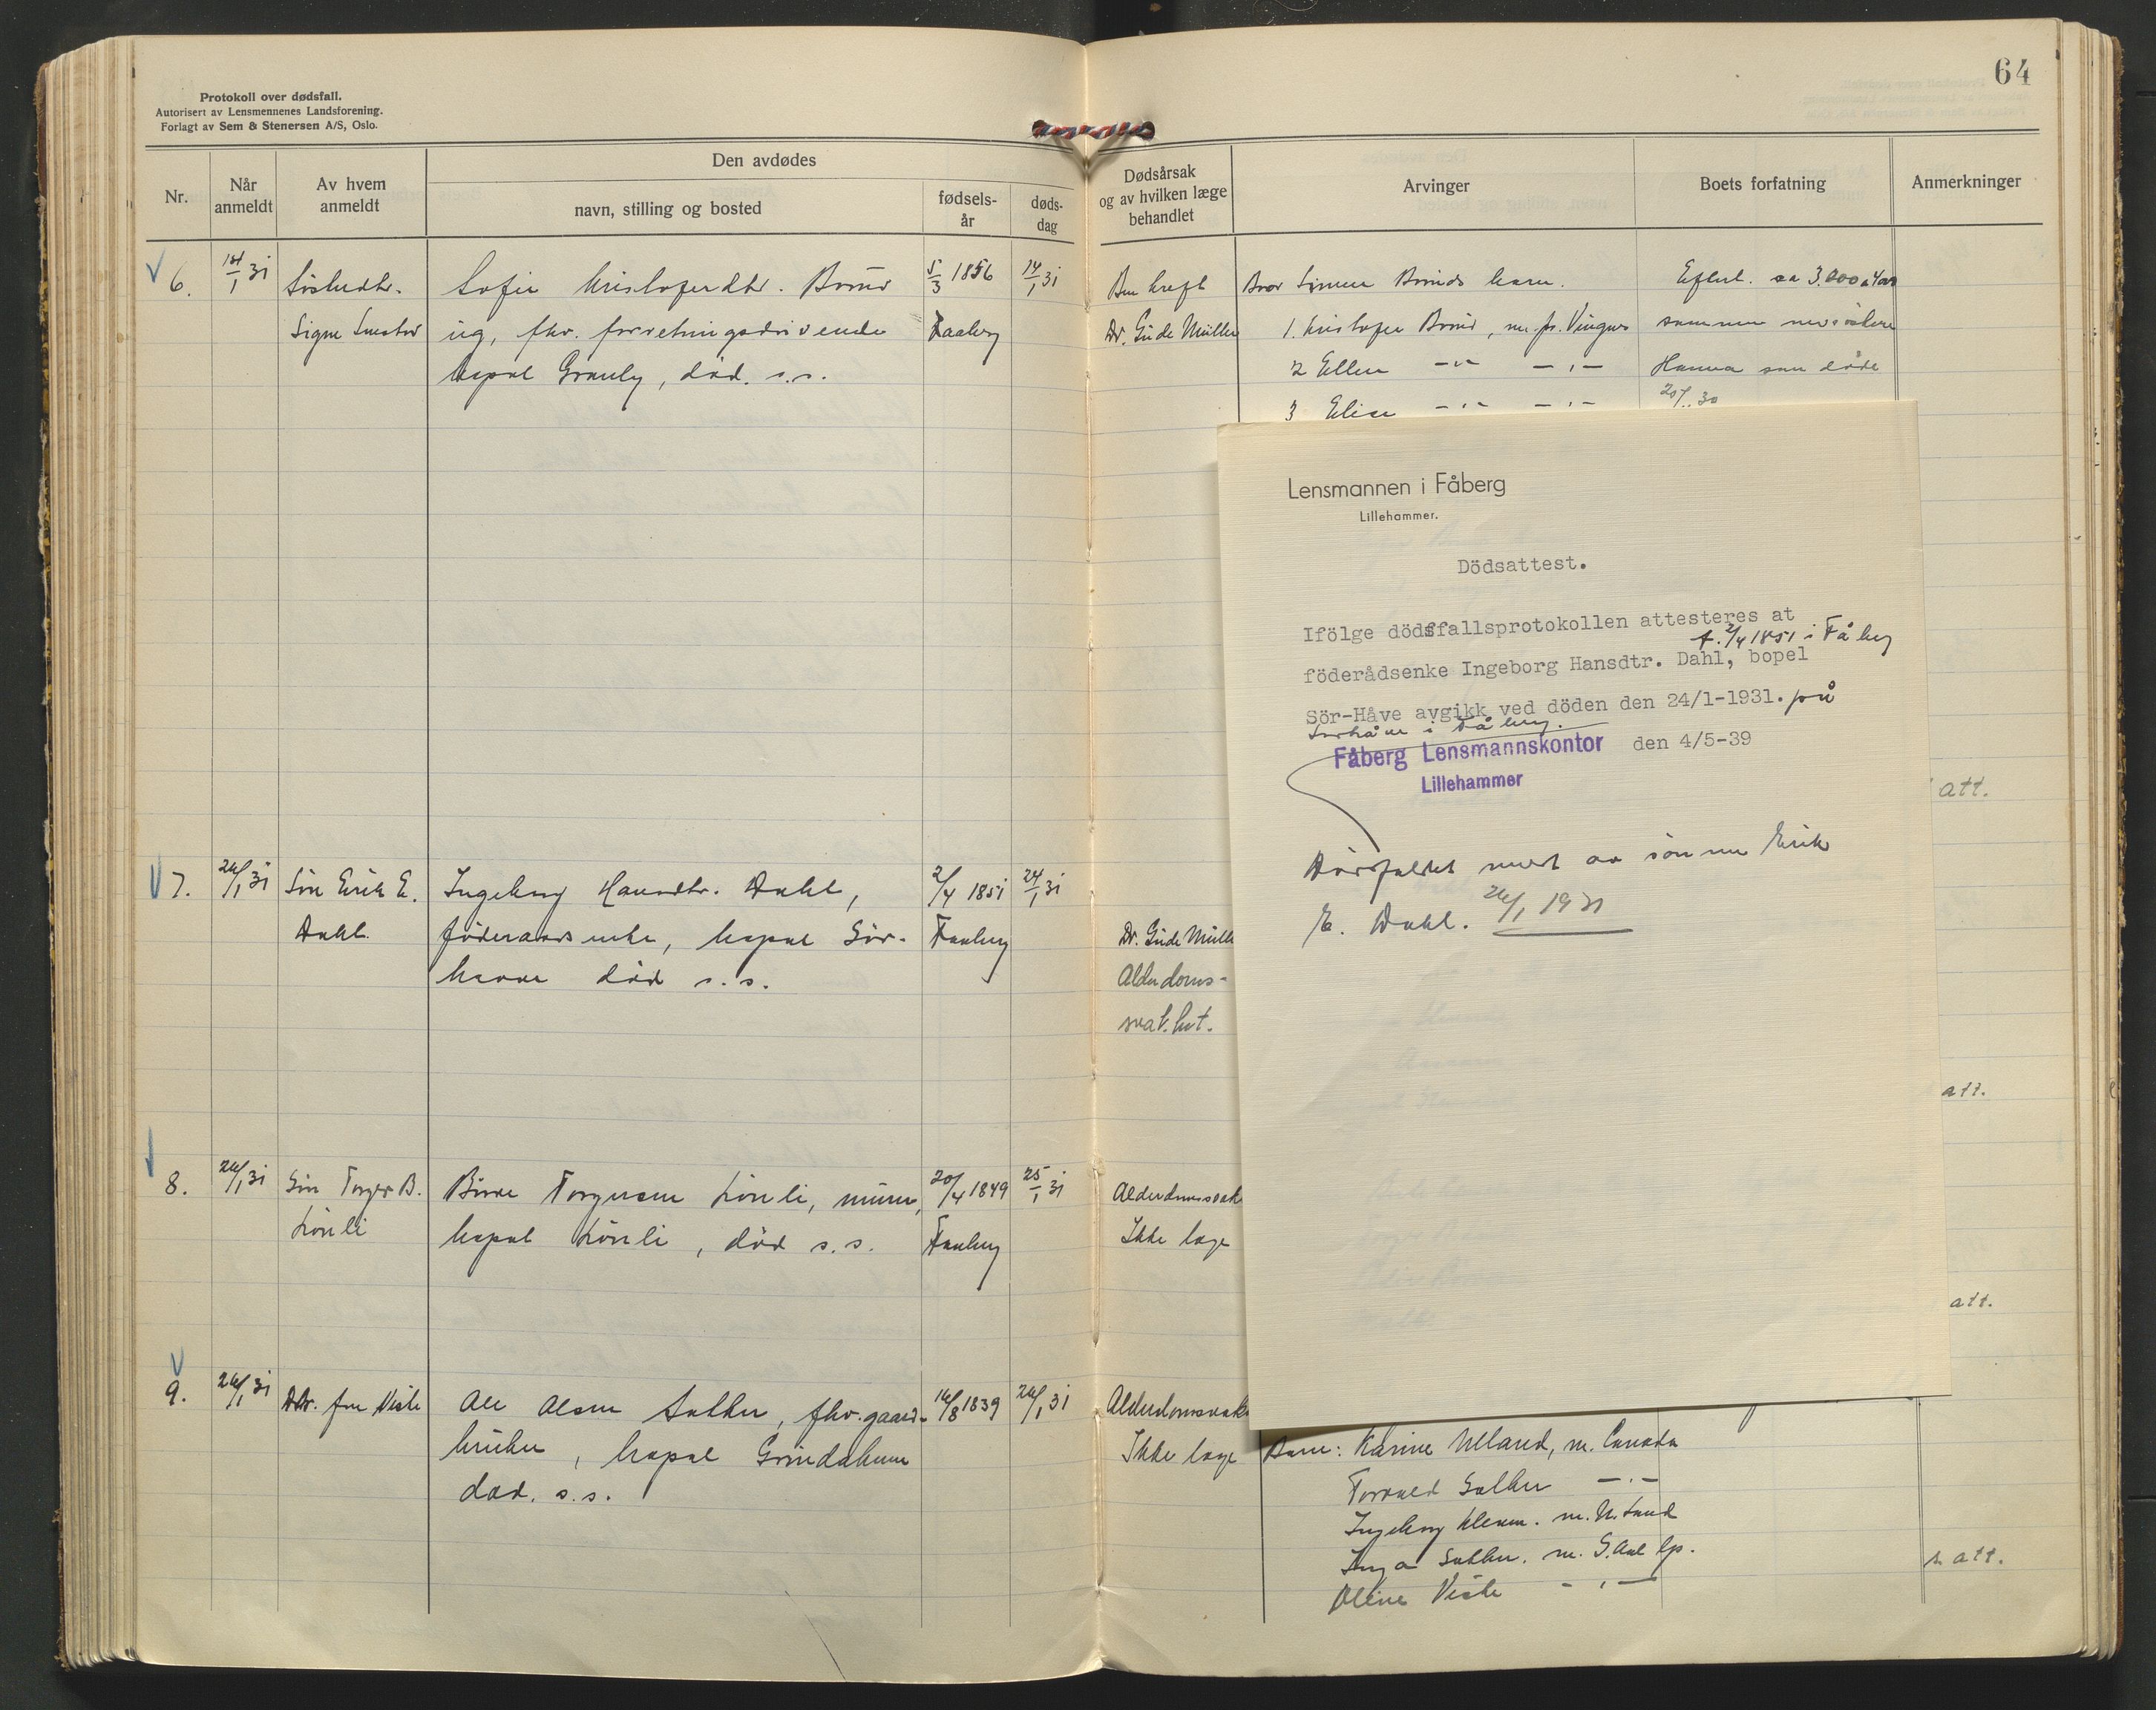 64
Protokoll over dødsfall.
Autorisert av Lensmennenes Landsforening.
Forlagt av Sem & Stenersen A/S, Oslo.
Nr.
Når anmeldt
Av hvem anmeldt
Den avdødes
navn, stilling og bosted
fødsels-
år
døds-
dag
Dødsårsak
og av hvilken læge
behandlet
Arvinger
Boets forfatning
Anmerkninger
6.
14/1 31
Signe
Sofie Kristofersdtr.
ug, fhv. forretningsdrivende
bopæl Granly, död. s.s.
5/3 1856
Faaberg
14/1 31
Ben kreft
Dr. Gude Müller
Bror Simen
1. Kristofer
2 Ellen -"- -"-
3 Elise -"- -"-
Efterl. ca 3.000 a 4000
sammen med söstere
Hanna som döde
7.
26/1 31
Sön Erik E.
Dahl.
Ingeborg Hansdtr. Dahl,
föderaadsenke, bopæl Sör-
haave död s.s.
2/4 1851
Faaberg
24/1 31
Dr. Gude Müll
Alderdoms-
svakhet.
8.
26/1 31
Sön Torger B.
Lönli
Torgersen Lönli,
bopæl Lönli, död s.s.
20/4 1849
Faaberg
25/1 31
Alderdomssvak
Ikke læge
9.
26/1 31
Dtr. fru Visle
Ole Olsen fhv. gaard-
bruker, bopæl
död. s.s.
16/8 1839
26/1 31
Alderdomssvak
Ikke læge
Barn: Karine m. Canada
Torvald -"-
Ingeborg
Inga
Oline Visle -"-
att.
att.
att.
att.
Lensmannen i Fåberg
Lillehammer.
Dödsattest.
Ifölge dödsfallsprotokollen attesteres at
f. 2/4 1851 i Fåberg
föderådsenke Ingeborg Hansdtr. Dahl, bopel
Sör-Håve avgikk ved döden den 24/1-1931. på
Sörhåve i Fåberg.
Fåberg Lensmannskontor den 4/5-39
Lillehammer
Dödsfallet meldt av sönnen Erik
E. Dahl. 26/1 1931